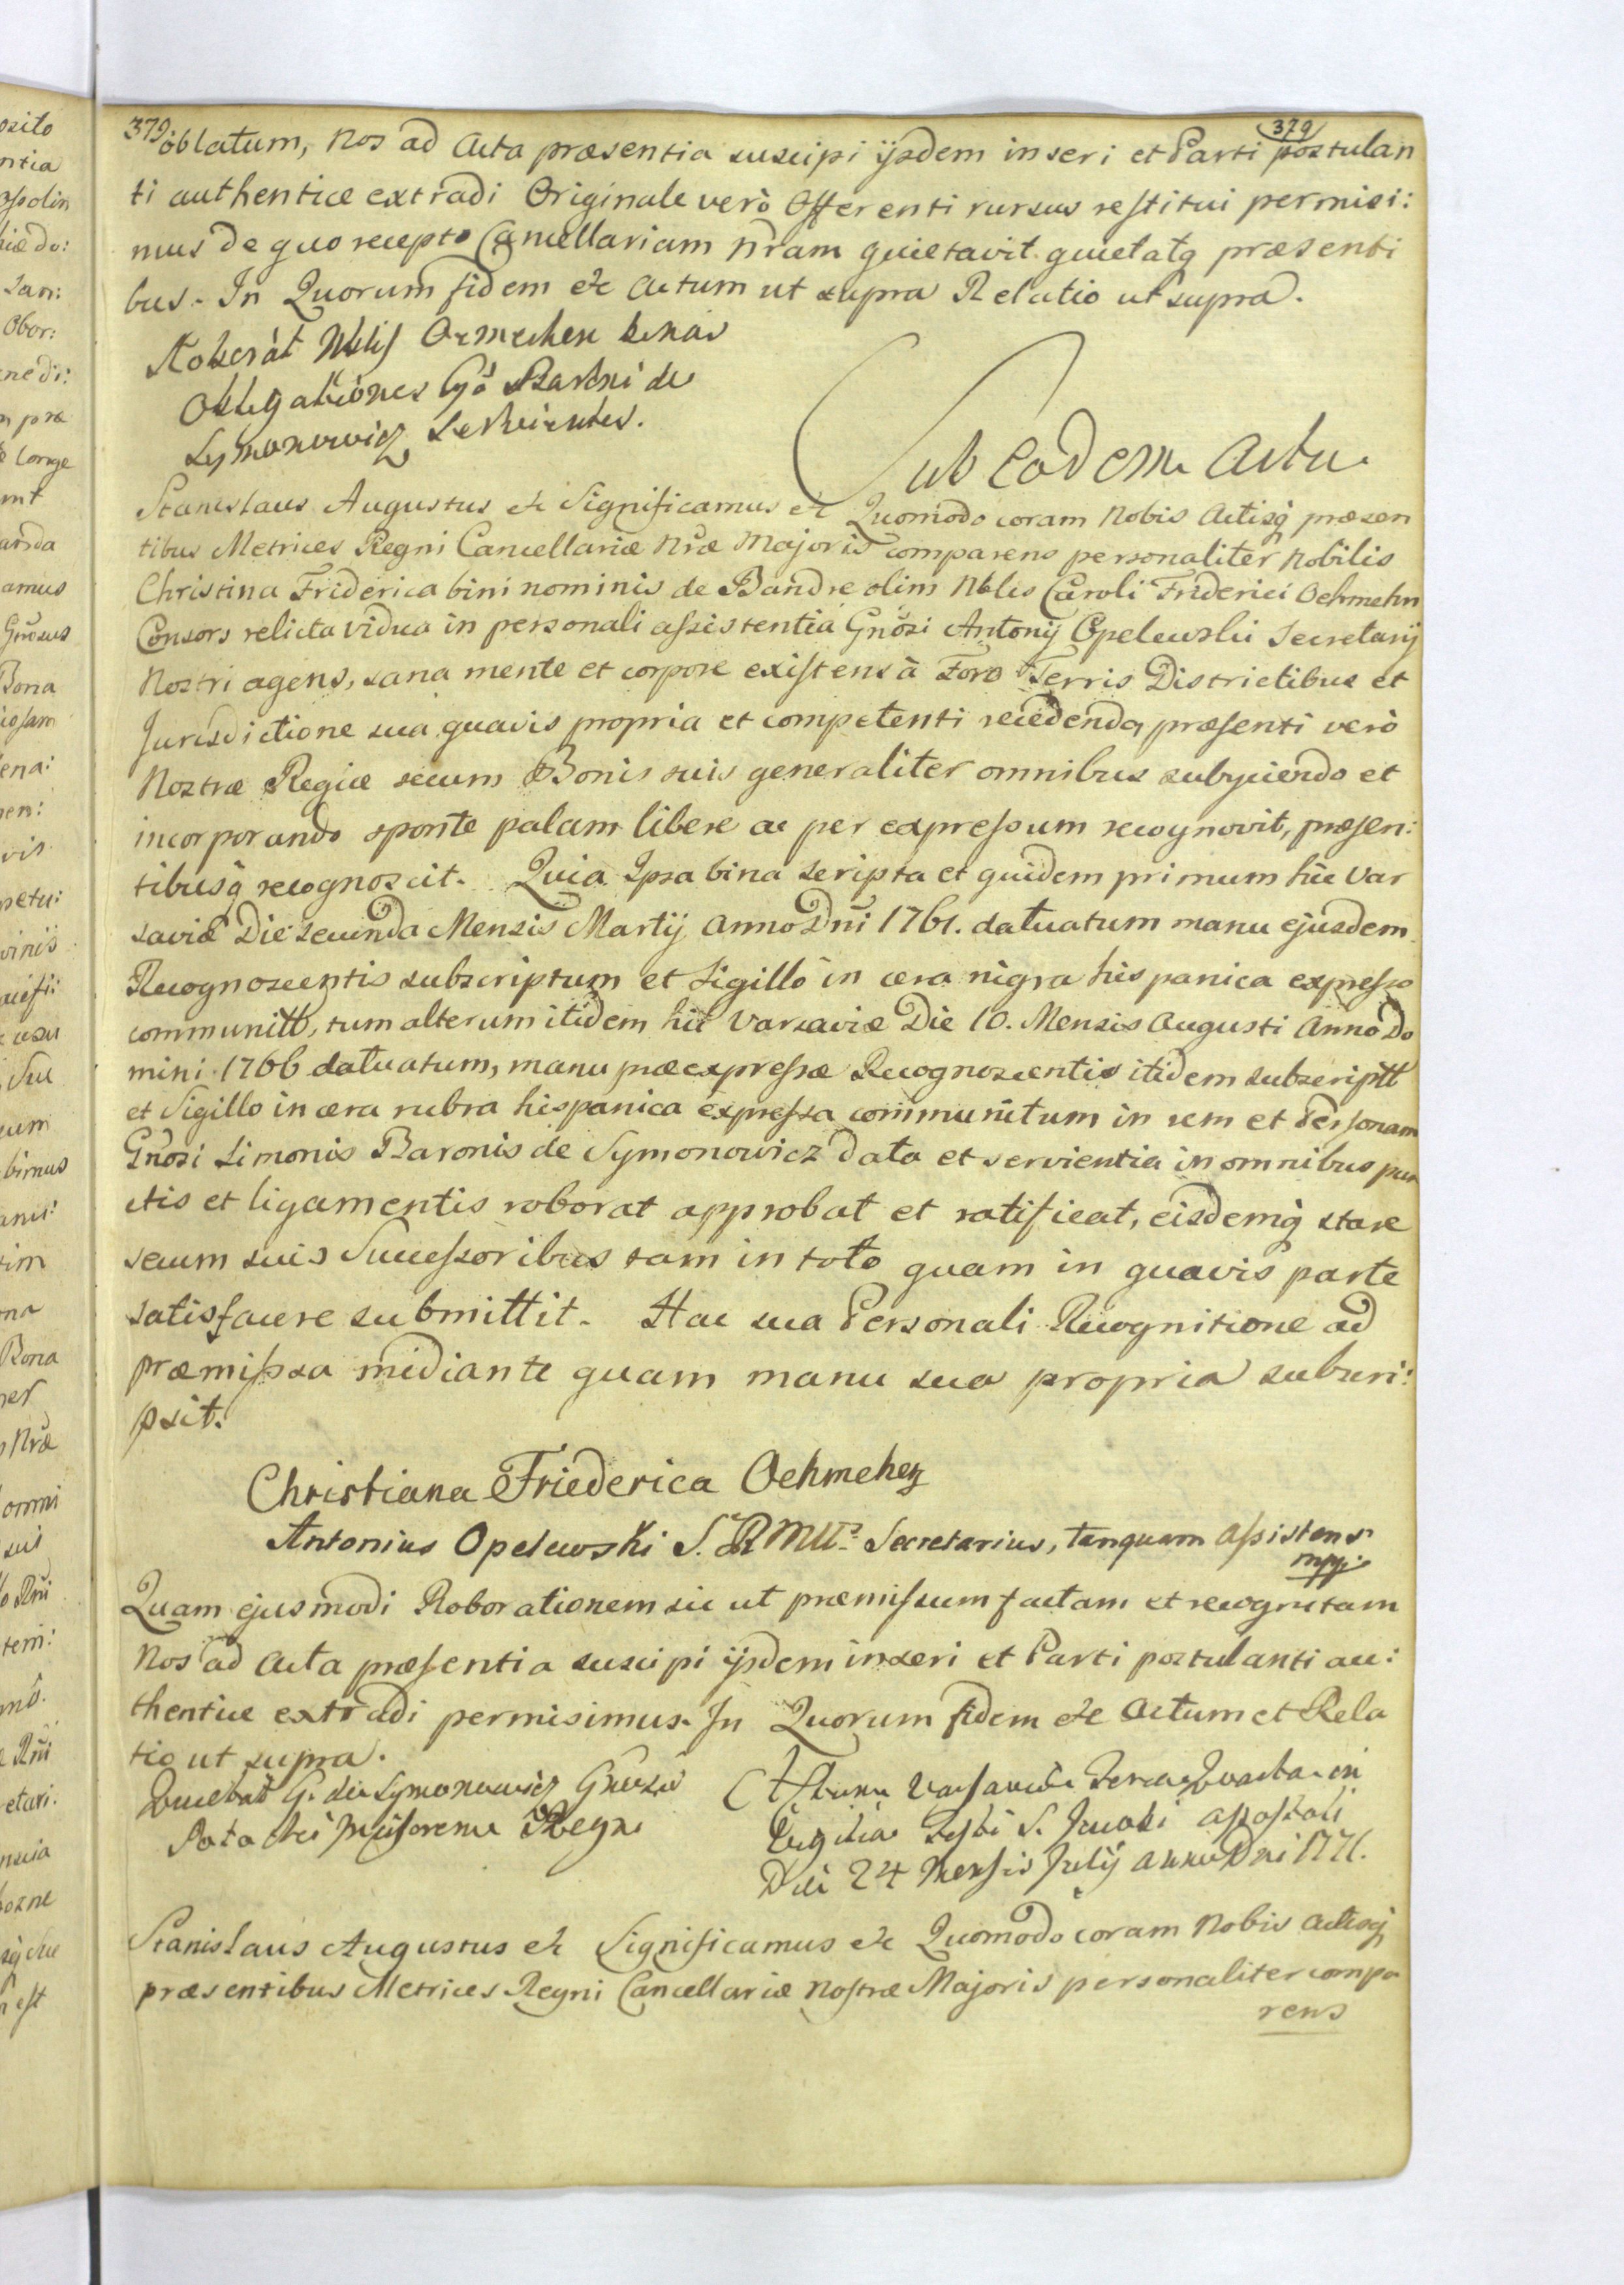 379. oblatum, Nos ad Acta præsentia suscipi ijsdem inseri et Parti postulan
379
ti authentice extradi Originale verò Offerenti rursus restitui permisi:
mus de quo recepto Cancellariam Nram quietavit quietatq præsenti
bus. In Quorum fidem &c Actum ut supra Relatio ut supra.
Roborat Nblis Oemehen binas
Obligationes Gso Baroni de
Symonowicz Servientes.
Sub eodem Actu
Stanislaus Augustus &c Significamus &c Quomodo coram Nobis Actisq præsen
tibus Metrices Regni Cancellariæ Nræ Majoris comparens personaliter Nobilis
Christina Friderica bini nominis de Bandre olim Nblis Caroli Friderici Oehmehn
Consors relicta vidua in personali assistentia Gnosi Antonij Opelewski Secretarij
Nostri agens, sana mente et corpore existens à Foro Terris Districtibus et
Jurisdictione sua quavis propria et competenti recedendo, præsenti verò
Nostræ Regiæ secum Bonis suis generaliter omnibus subijciendo et
incorporando sponte palam libere ac per expressum recognovit, præsen:
tibusq recognoscit. Quia Ipsa bina scripta et quidem primum hic Var
saviæ Die secunda Mensis Martij Anno Dni 1761. datuatum manu ejusdem
Recognoscentis subscriptum et Sigillo in cera nigra hispanica expresso
communitt, tum alterum itidem hic Varsaviæ Die 10. Mensis Augusti Anno Do
mini 1766 datuatum, manu præexpressæ Recognoscentis itidem subscriptt
et Sigillo in cera rubra hispanica expressa communitum in rem et Personam
Gnosi Simonis Baronis de Symonowicz data et servientia in omnibus pun
ctis et ligamentis roborat approbat et ratificat, eisdemq stare
secum suis Successoribus tam in toto quam in quavis parte
satisfacere submittit. Hac sua Personali Recognitione ad
præmissa mediante quam manu sua propria subscri:
psit.
Christiana Friederica Oehmehen
Antonius Opelewski S. R M Secretarius, tanquam Assistens
mpp.
Quam ejusmodi Roborationem sic ut præmissum factam et recognitam
Nos ad Acta præsentia suscipi ijsdem inseri et Parti postulanti au:
thentice extradi permisimus. In Quorum fidem &c Actum et Rela
tio ut supra.
Quietat G. de Symonowicz Gnosum
Potocki Incisorem Regni
Actum Varsaviæ Feria Quarta in
Vigilia Festi S. Jacobi Apostoli
Die 24 Mensis Julij Anno Dni 1771.
Stanislaus Augustus &c Significamus &c Quomodo coram Nobis Actisq
præsentibus Metrices Regni Cancellariæ Nostræ Majoris personaliter compa
rens